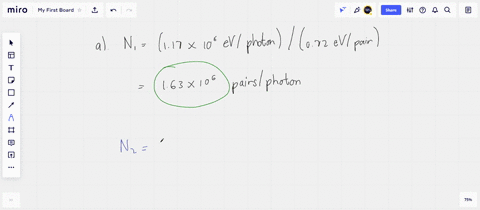 miro
My First Board
Share
a) N₁ = (1.17 × 10⁶ eV/photon) / (0.72 eV/pair)
= 1.63 × 10⁶ pairs/photon
N₂ =
75%